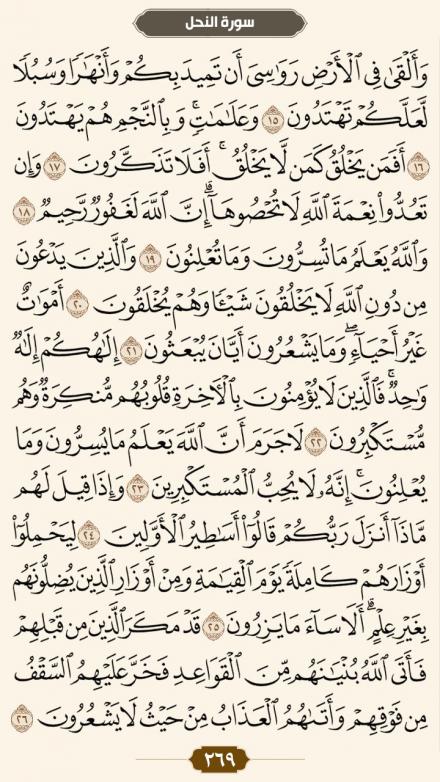 سورة النحل
وَأَلۡقَىٰ فِي ٱلۡأَرۡضِ رَوَٰسِيَ أَن تَمِيدَ بِكُمۡ وَأَنۡهَٰرٗا وَسُبُلٗا
لَّعَلَّكُمۡ تَهۡتَدُونَ ١٥ وَعَلَٰمَٰتٖۚ وَبِٱلنَّجۡمِ هُمۡ يَهۡتَدُونَ
١٦ أَفَمَن يَخۡلُقُ كَمَن لَّا يَخۡلُقُۚ أَفَلَا تَذَكَّرُونَ ١٧ وَإِن
تَعُدُّواْ نِعۡمَةَ ٱللَّهِ لَا تُحۡصُوهَآۗ إِنَّ ٱللَّهَ لَغَفُورٞ رَّحِيمٞ ١٨
وَٱللَّهُ يَعۡلَمُ مَا تُسِرُّونَ وَمَا تُعۡلِنُونَ ١٩ وَٱلَّذِينَ يَدۡعُونَ
مِن دُونِ ٱللَّهِ لَا يَخۡلُقُونَ شَيۡـٔٗا وَهُمۡ يُخۡلَقُونَ ٢٠ أَمۡوَٰتٌ
غَيۡرُ أَحۡيَآءٖۖ وَمَا يَشۡعُرُونَ أَيَّانَ يُبۡعَثُونَ ٢١ إِلَٰهُكُمۡ إِلَٰهٞ
وَٰحِدٞۚ فَٱلَّذِينَ لَا يُؤۡمِنُونَ بِٱلۡأٓخِرَةِ قُلُوبُهُم مُّنكِرَةٞ وَهُم
مُّسۡتَكۡبِرُونَ ٢٢ لَا جَرَمَ أَنَّ ٱللَّهَ يَعۡلَمُ مَا يُسِرُّونَ وَمَا
يُعۡلِنُونَۚ إِنَّهُۥ لَا يُحِبُّ ٱلۡمُسۡتَكۡبِرِينَ ٢٣ وَإِذَا قِيلَ لَهُم
مَّاذَآ أَنزَلَ رَبُّكُمۡ قَالُوٓاْ أَسَٰطِيرُ ٱلۡأَوَّلِينَ ٢٤ لِيَحۡمِلُوٓاْ
أَوۡزَارَهُمۡ كَامِلَةٗ يَوۡمَ ٱلۡقِيَٰمَةِ وَمِنۡ أَوۡزَارِ ٱلَّذِينَ يُضِلُّونَهُم
بِغَيۡرِ عِلۡمٍۗ أَلَا سَآءَ مَا يَزِرُونَ ٢٥ قَدۡ مَكَرَ ٱلَّذِينَ مِن قَبۡلِهِمۡ
فَأَتَى ٱللَّهُ بُنۡيَٰنَهُم مِّنَ ٱلۡقَوَاعِدِ فَخَرَّ عَلَيۡهِمُ ٱلسَّقۡفُ
مِن فَوۡقِهِمۡ وَأَتَىٰهُمُ ٱلۡعَذَابُ مِنۡ حَيۡثُ لَا يَشۡعُرُونَ ٢٦
٢٦٩